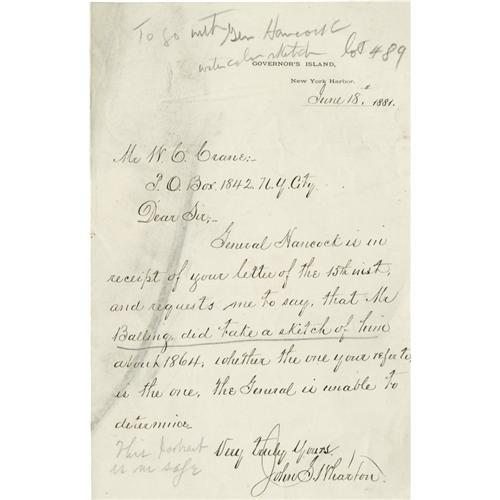 To go with Gen Hancock
watercolor sketch lot #89
GOVERNOR'S ISLAND,
New York Harbor.
June 18, 1881.
Mr W. C. Crane:-
P. O. Box. 1842. N.Y. City.
Dear Sir,-
General Hancock is in
receipt of your letter of the 15th inst,
and requests me to say, that Mr
Balling, did take a sketch of him
about 1864; whether the one your refer to,
is the one, the General is unable to
determine.
Very truly Yours.
John S. Wharton.
This portrait
is in safe